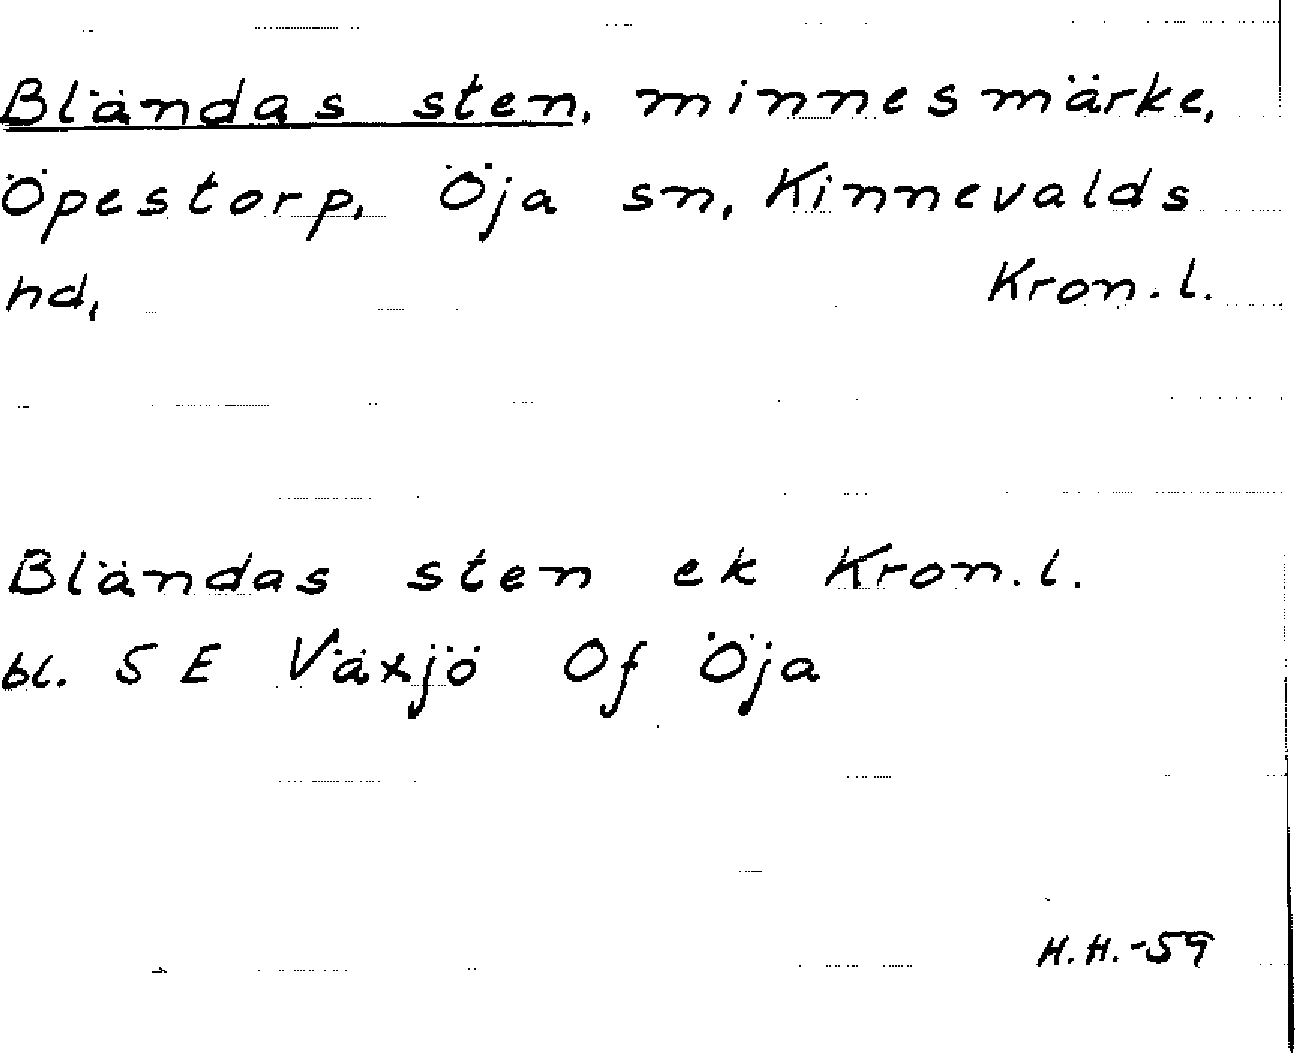 Bländas sten, minnesmärke,
Öpestorp, Öja sn, Kinnevalds
hd, Kron. l.
Bländas sten ek Kron. l.
bl. 5 E Växjö Of Öja
H.H.-59